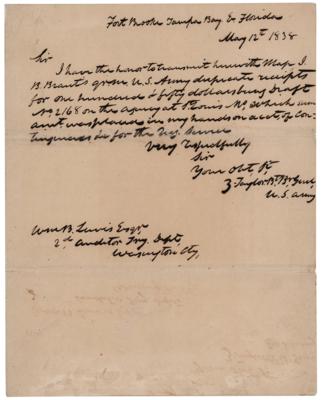 Fort Brooke Tampa Bay E Florida
May 12th 1838
Sir
I have the honor to transmit herewith Majr I
B. Brants Qr M U.S. Army duplicate receipts
for one hundred & fifty dollars being draft
No 2168 on the agency at St Louis Mo. which am
ount was placed in my hands on acct of Con
tingencies &c for the Regr. Service
Very Respectfully
Sir
Your Obt St
Z. Taylor Bt. Br. Genl.
U.S. Army
Wm B. Lewis Esqr
2d Auditor Try. Dept,
Washington City,